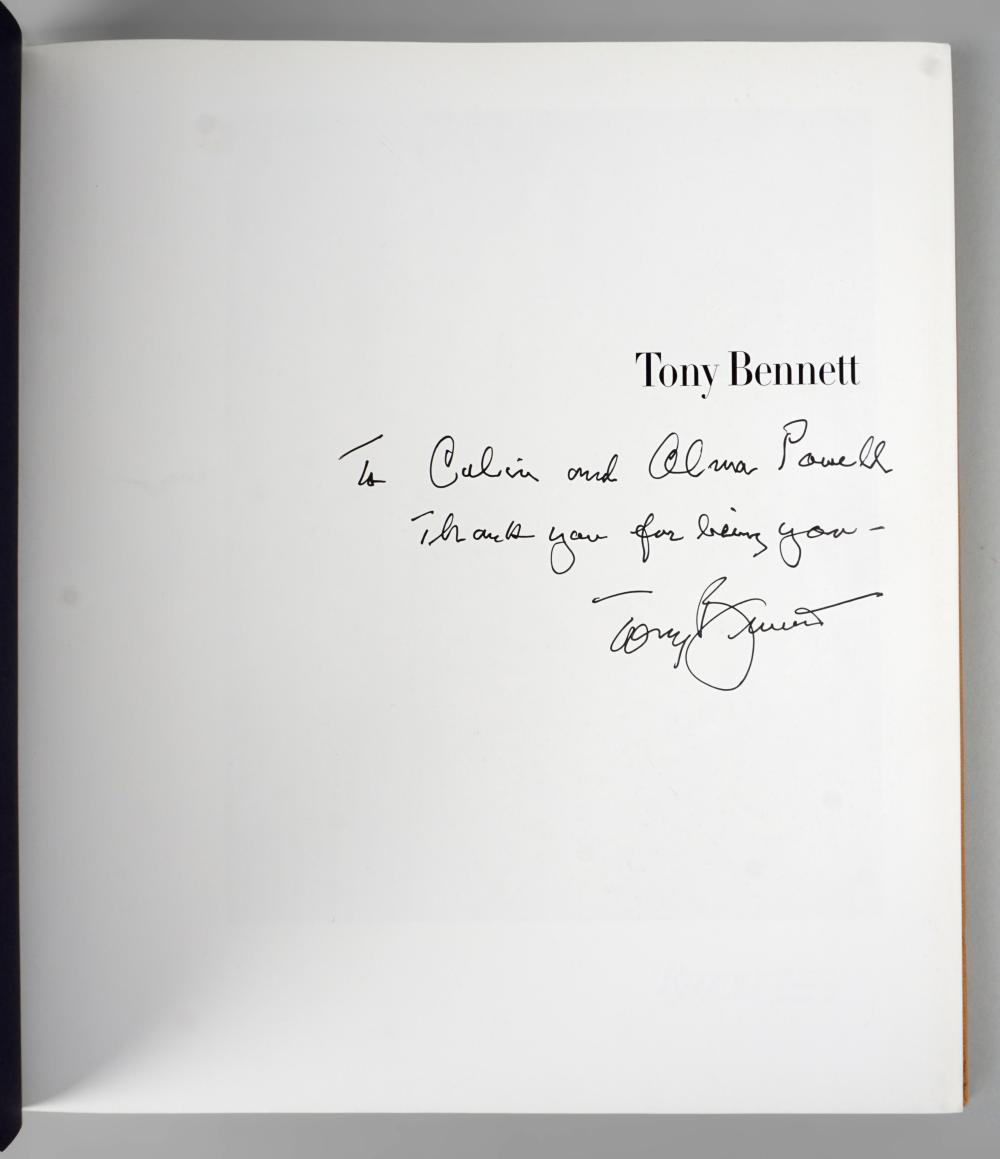 Tony Bennett
To Colin and Alma Powell
Thank you for being you -
Tony Bennett